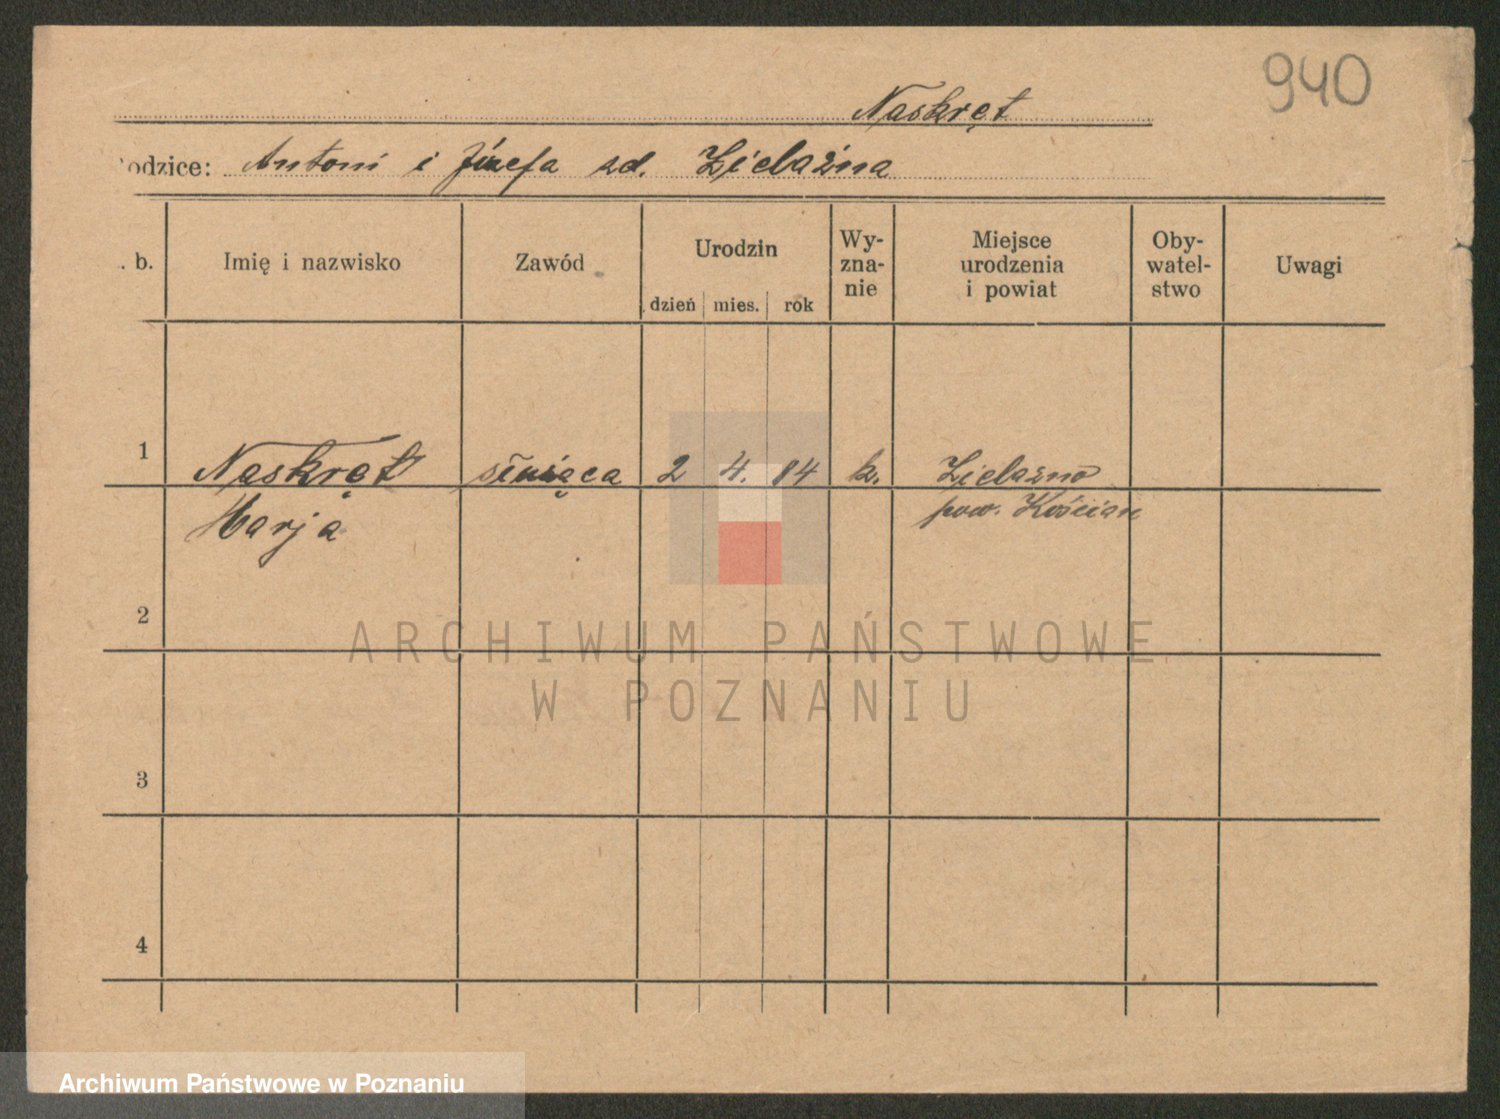 940
Naskręt
odzice: Antoni i Józefa zd. Żielaźna
. b. Imię i nazwisko Zawód Urodzin dzień mies. rok Wy-zna-nie Miejsce urodzenia i powiat Oby-watel-stwo Uwagi
1 Naskręt służąca 2 4. 84 k.
Marja pow. Kościan
2
ARCHIWUM PAŃSTWOWE
W POZNANIU
3
4
Archiwum Państwowe w Poznaniu